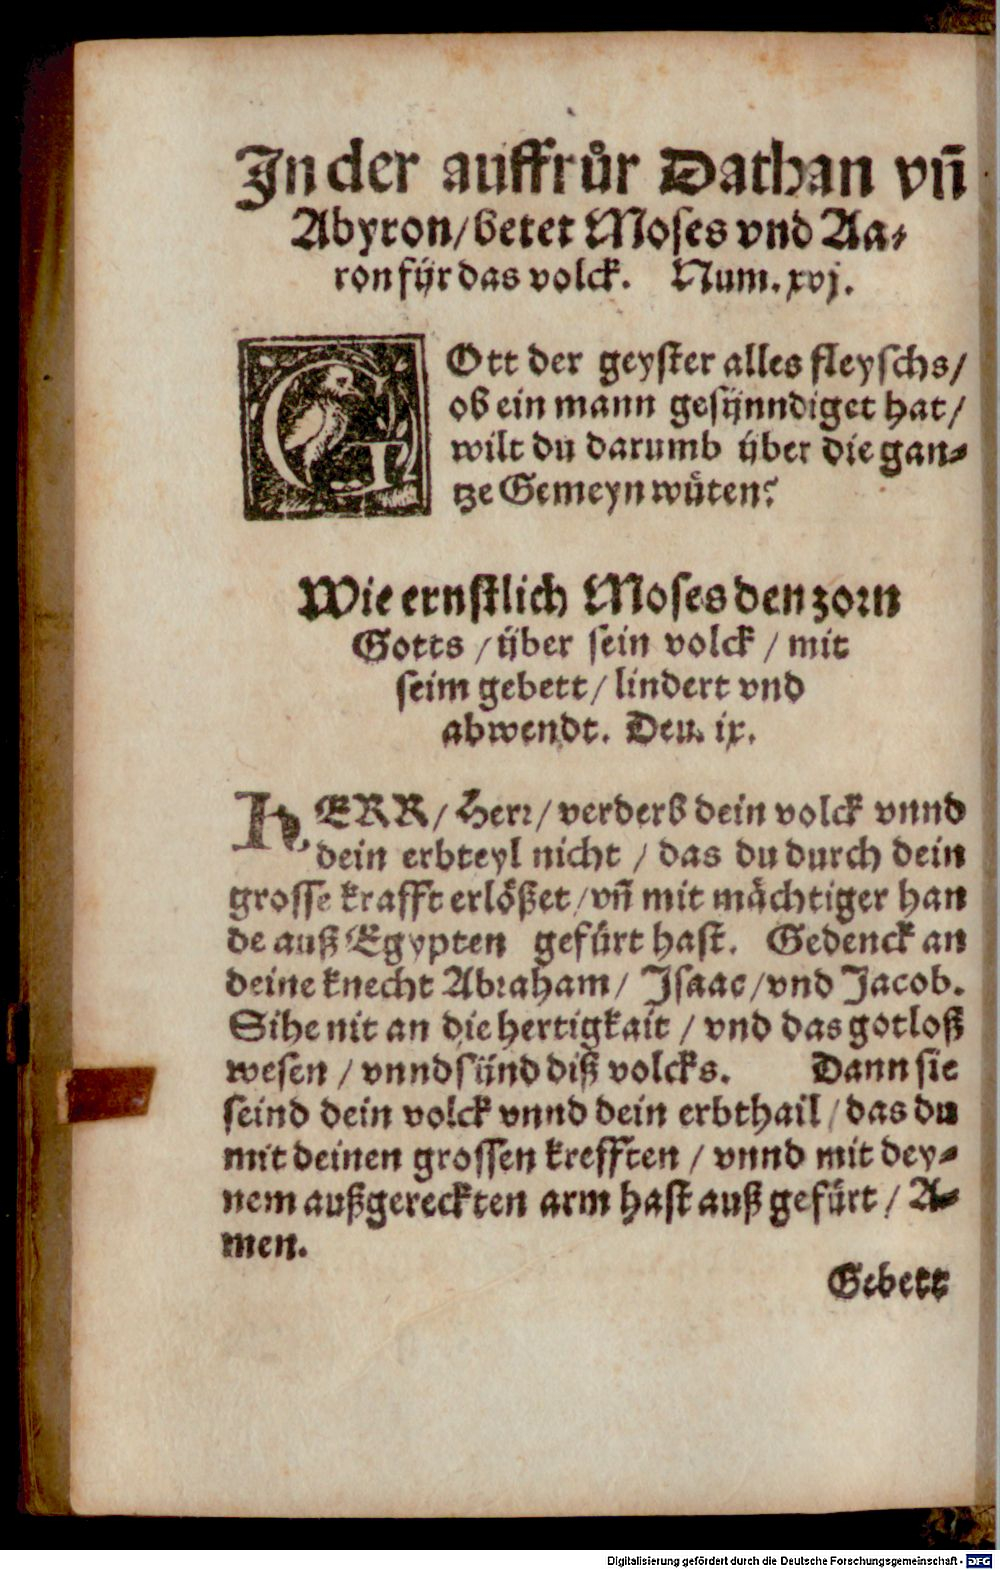 In der auffrůr Dathan vñ
Abyron/ betet Moses vnd Aa-
ron für das volck. Num. xvj.
GOtt der geyster alles fleyschs/
ob ein mann gesünndiget hat/
wilt du darumb über die gan-
tze Gemeyn wüten?
Wie ernstlich Moses den zorn
Gotts / über sein volck / mit
seim gebett/ lindert vnd
abwendt. Deu. ix.
HERR/ Herr/ verderb dein volck vnnd
dein erbteyl nicht / das du durch dein
grosse krafft erlößet/ vñ mit mächtiger han
de auß Egypten gefürt hast. Gedenck an
deine knecht Abraham/ Isaac/ vnd Jacob.
Sihe nit an die hertigkait / vnd das gotloß
wesen / vnnd sünd diß volcks. Dann sie
seind dein volck vnnd dein erbthail/ das du
mit deinen grossen krefften / vnnd mit dey-
nem außgereckten arm hast auß gefürt / A-
men.
Gebett
Digitalisierung gefördert durch die Deutsche Forschungsgemeinschaft - DFG